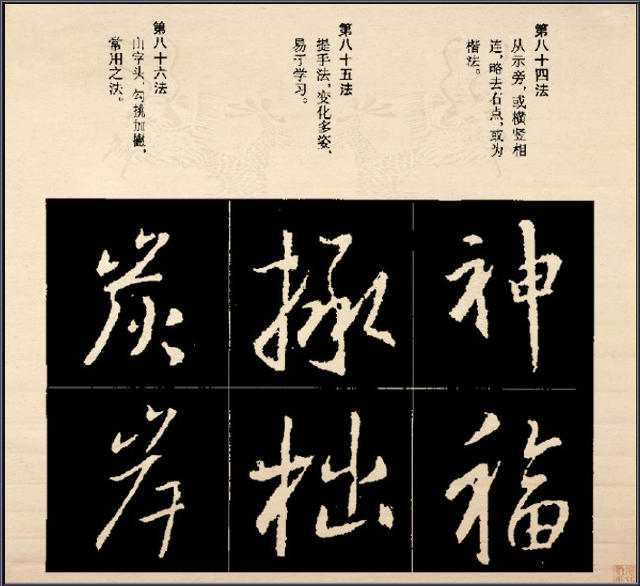 第八十四法
从示旁,或横竖相
连,略去右点,或为
楷法。
神
福
第八十五法
提手法,变化多姿、
易于学习。
拙
第八十六法
山字头、勾挑加撇,
常用之法。
炭
岸